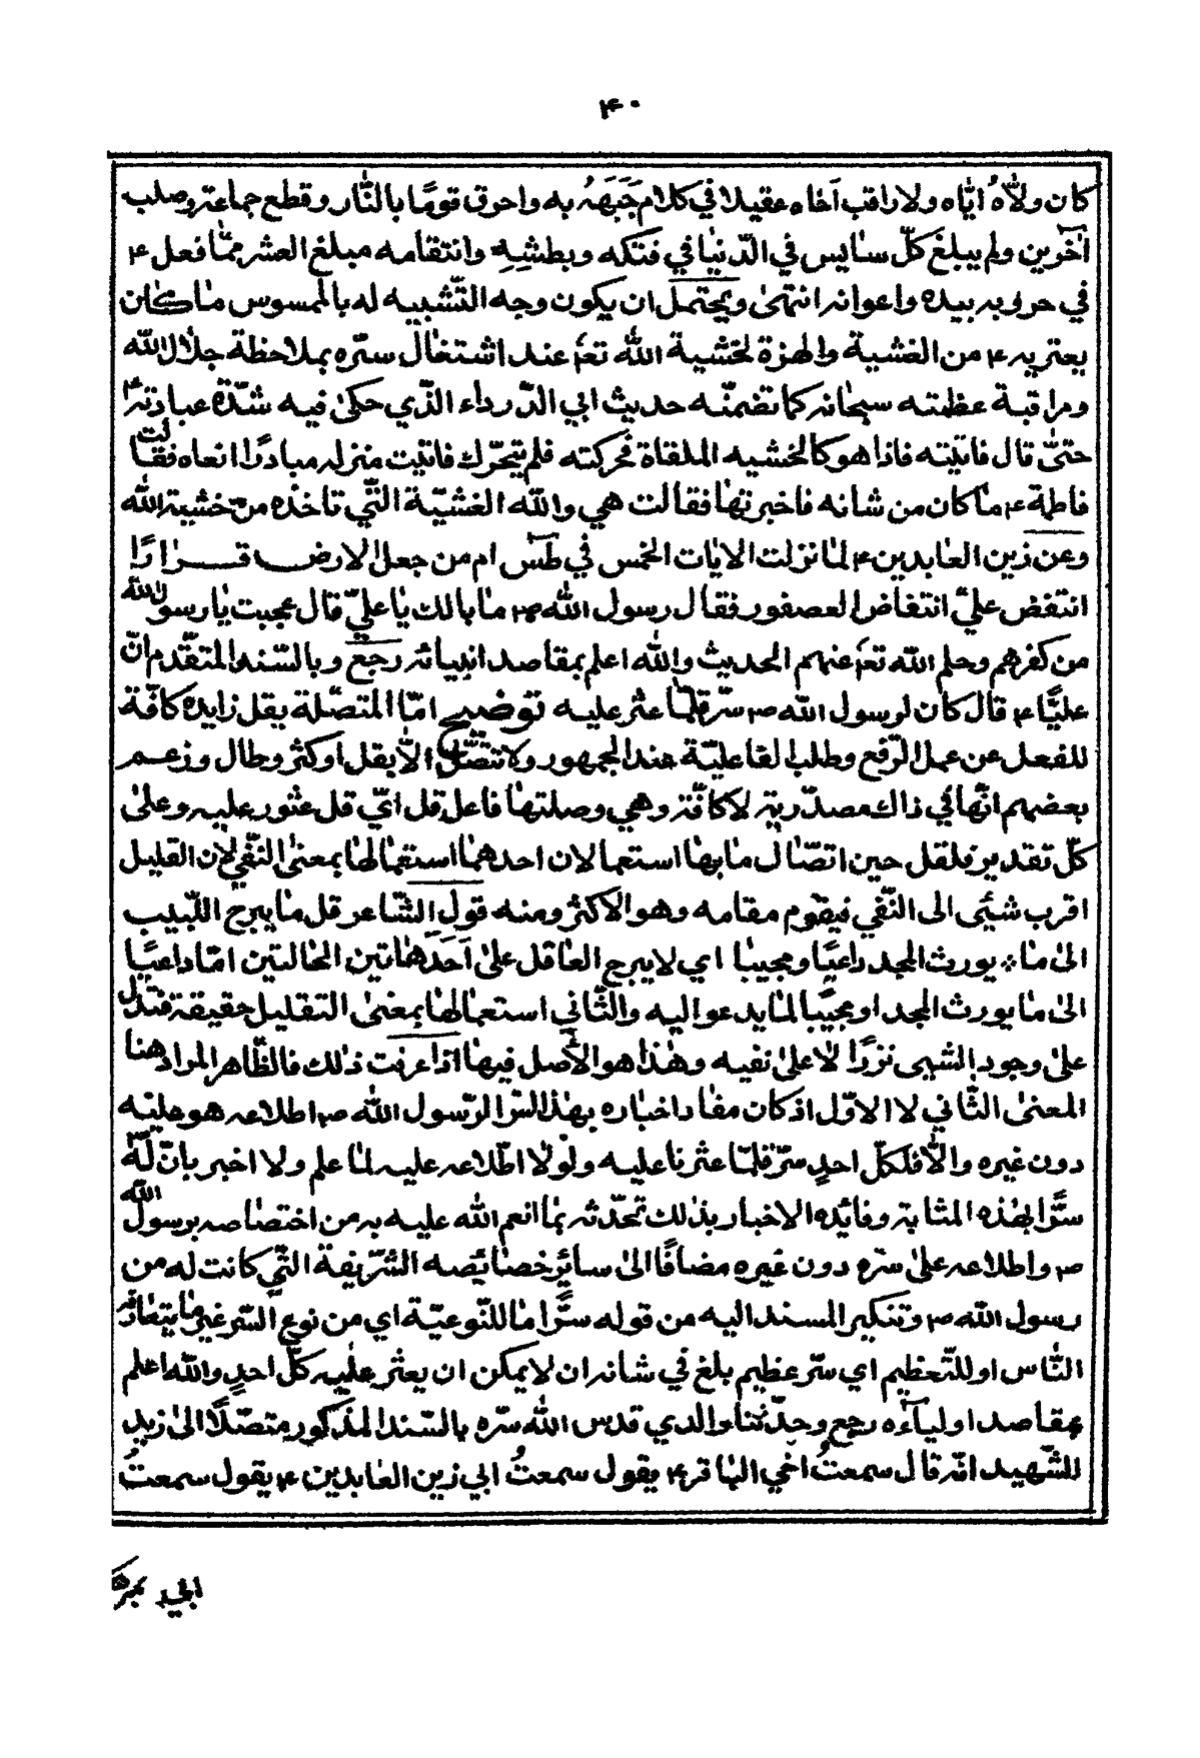 ۴۰
كان ولّاه ايّاه ولا راقب آخاه عقيلا في كلام جَبَهَهُ به واحرق قومًا بالنّار وقطع جماعة وصلب
اٰخرين ولم يبلغ كلّ سايس في الدّنيا في فتكه وبطشِهِ وانتقامه مبلغ العشر ممّا فعل ۴
في حروبه بيده واعوانه انتهىٰ ويحتمل ان يكون وجه التّشبيه له بالممسوس ما كان
يعتريه ۴ من الغشية والهزة لخشية اللّٰه تع۴ عند اشتغال سرّه بملاحظة جلال اللّٰه
ومراقبة عظمته سبحانه كما تضمنّه حديث ابي الدّرداء الذّي حكىٰ فيه شدّة عبادته ۴
حتىّٰ قال فاتيته فاذا هو كالخشبه الملقاة فحركته فلم يتحرّك فاتيت منزله مبادرًا انعاه فقالت
فاطمة ۴ ما كان من شانه فاخبرتها فقالت هي واللّٰه الغشيّة التّي تاخذه من خشية اللّٰه
وعن زين العابدين ۴ لما نزلت الايات الخمس في طٓسٓ ام من جعل الارض قــرارًا
انتفض عليّ انتفاض العصفور فقال رسول اللّٰه ص ما بالك يا عليّ قال عجبت يا رسول اللّٰه
من كفرهم وحلم اللّٰه تع۴ عنهم الحديث واللّٰه اعلم بمقاصد انبيائه رجع وبالسّند المتقدّم انّ
عليًّا ۴ قال كان لرسول اللّٰه ص سرّ قلّما عثر عليه توضيح امّا المتصّلة بقل زايده كافّة
للفعل عن عمل الرّفع وطلب الفاعليّة عند الجمهور ولا تتصّل الّا بقل او كثر وطال وزعم
بعضهم انّها في ذاك مصدّرية لا كافّة وهي وصلتها فاعل قل ايّ قل عثور عليه وعلىٰ
كلّ تقدير فلقل حين اتصّال ما بها استعمالان احدهما استعمالها بمعنىٰ النّفي لان القليل
اقرب شيئ الى النّفي فيقوم مقامه وهو الاكثر ومنه قول الشّاعر قل ما يبرح اللّبيب
الىٰ ما * يورث المجد داعيًا ومجيبا اي لا يبرج العاقل علىٰ اَحَدَ هاتين الحالتين امّا داعيًا
الىٰ ما يورث المجد او مجيبًا لما يدعو اليه والثّاني استعمالها بمعنىٰ التقليل حقيقة فتدلّ
علىٰ وجود الشيى نزرًا لا علىٰ نفيه وهٰذا هو الاصل فيها اذا عرفت ذٰلك فالظّاهر المراد هنا
المعنىٰ الثّاني لا الاوّل اذ كان مفاد اخباره بهٰذا السّرّ الرّسول اللّٰه ص اطلاعه هو عليه
دون غيره والّا فلكلّ احدٍ سرّ قلّما عثرنا عليه ولولا اطّلاعه عليه لما علم ولا اخبر بانّ لّه ص
سرًّا بهٰذه المثابة وفائده الاخبار بذٰلك تحّدثه بما انعم اللّٰه عليه به من اختصاصه برسول اللّٰه
ص واطلاعه علىٰ سرّه دون غيره مضافًا الىٰ سائر خصائصه الشّريفة التّي كانت له من
رسول اللّٰه ص وتنكير المسند اليه من قوله سرًّا ما للنّوعيّة اي من نوع السّر غير ما يتعارفه
النّاس او للتّعظيم اي سرّ عظيم بلغ في شانه ان لا يمكن ان يعثر عليه كلّ احدٍ واللّٰه اعلم
بمقاصد اوليآءه رجع وحدّثنا والدي قدس اللّٰه سرّه بالسّند المذكور متصّلًا الىٰ زيدٍ
الشّهيد انّه قال سمعتُ اخي الباقر ۴ يقول سمعتُ ابي زين العابدين ۴ يقول سمعتُ
ابي